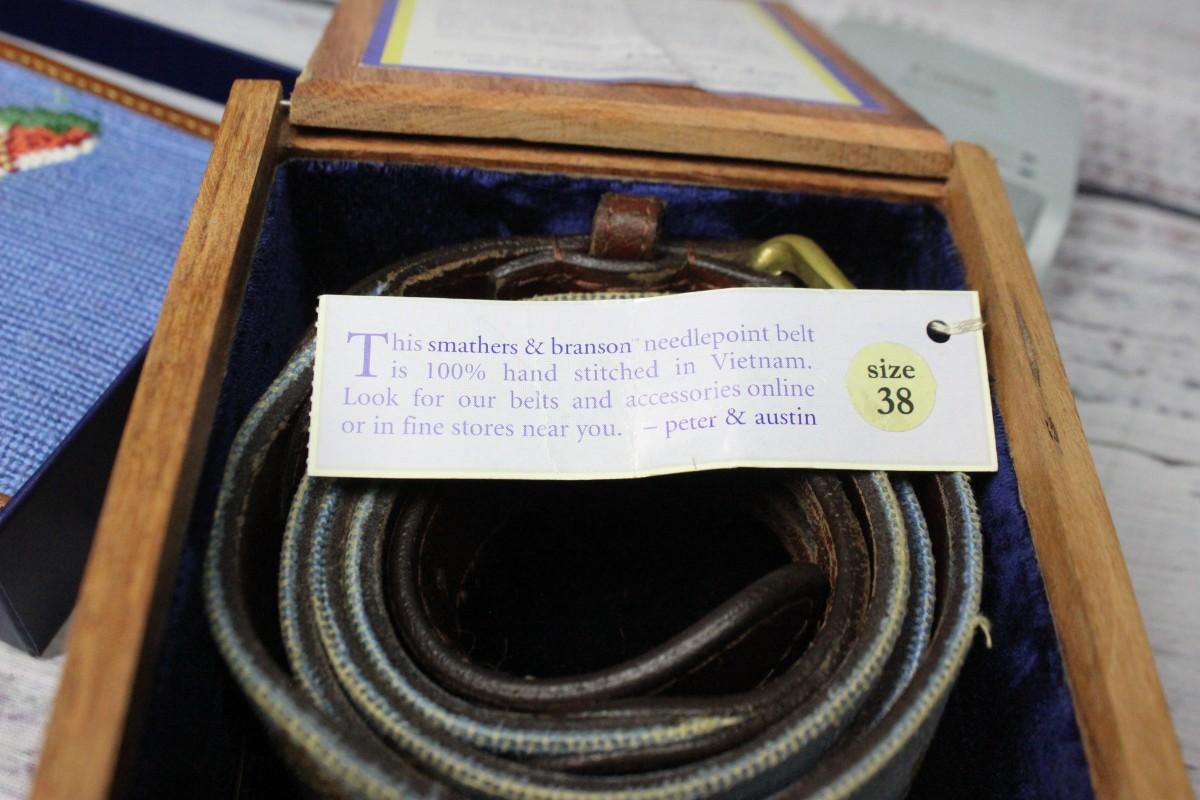 This smathers & branson™ needlepoint belt
is 100% hand stitched in Vietnam.
Look for our belts and accessories online
or in fine stores near you. – peter & austin
size
38